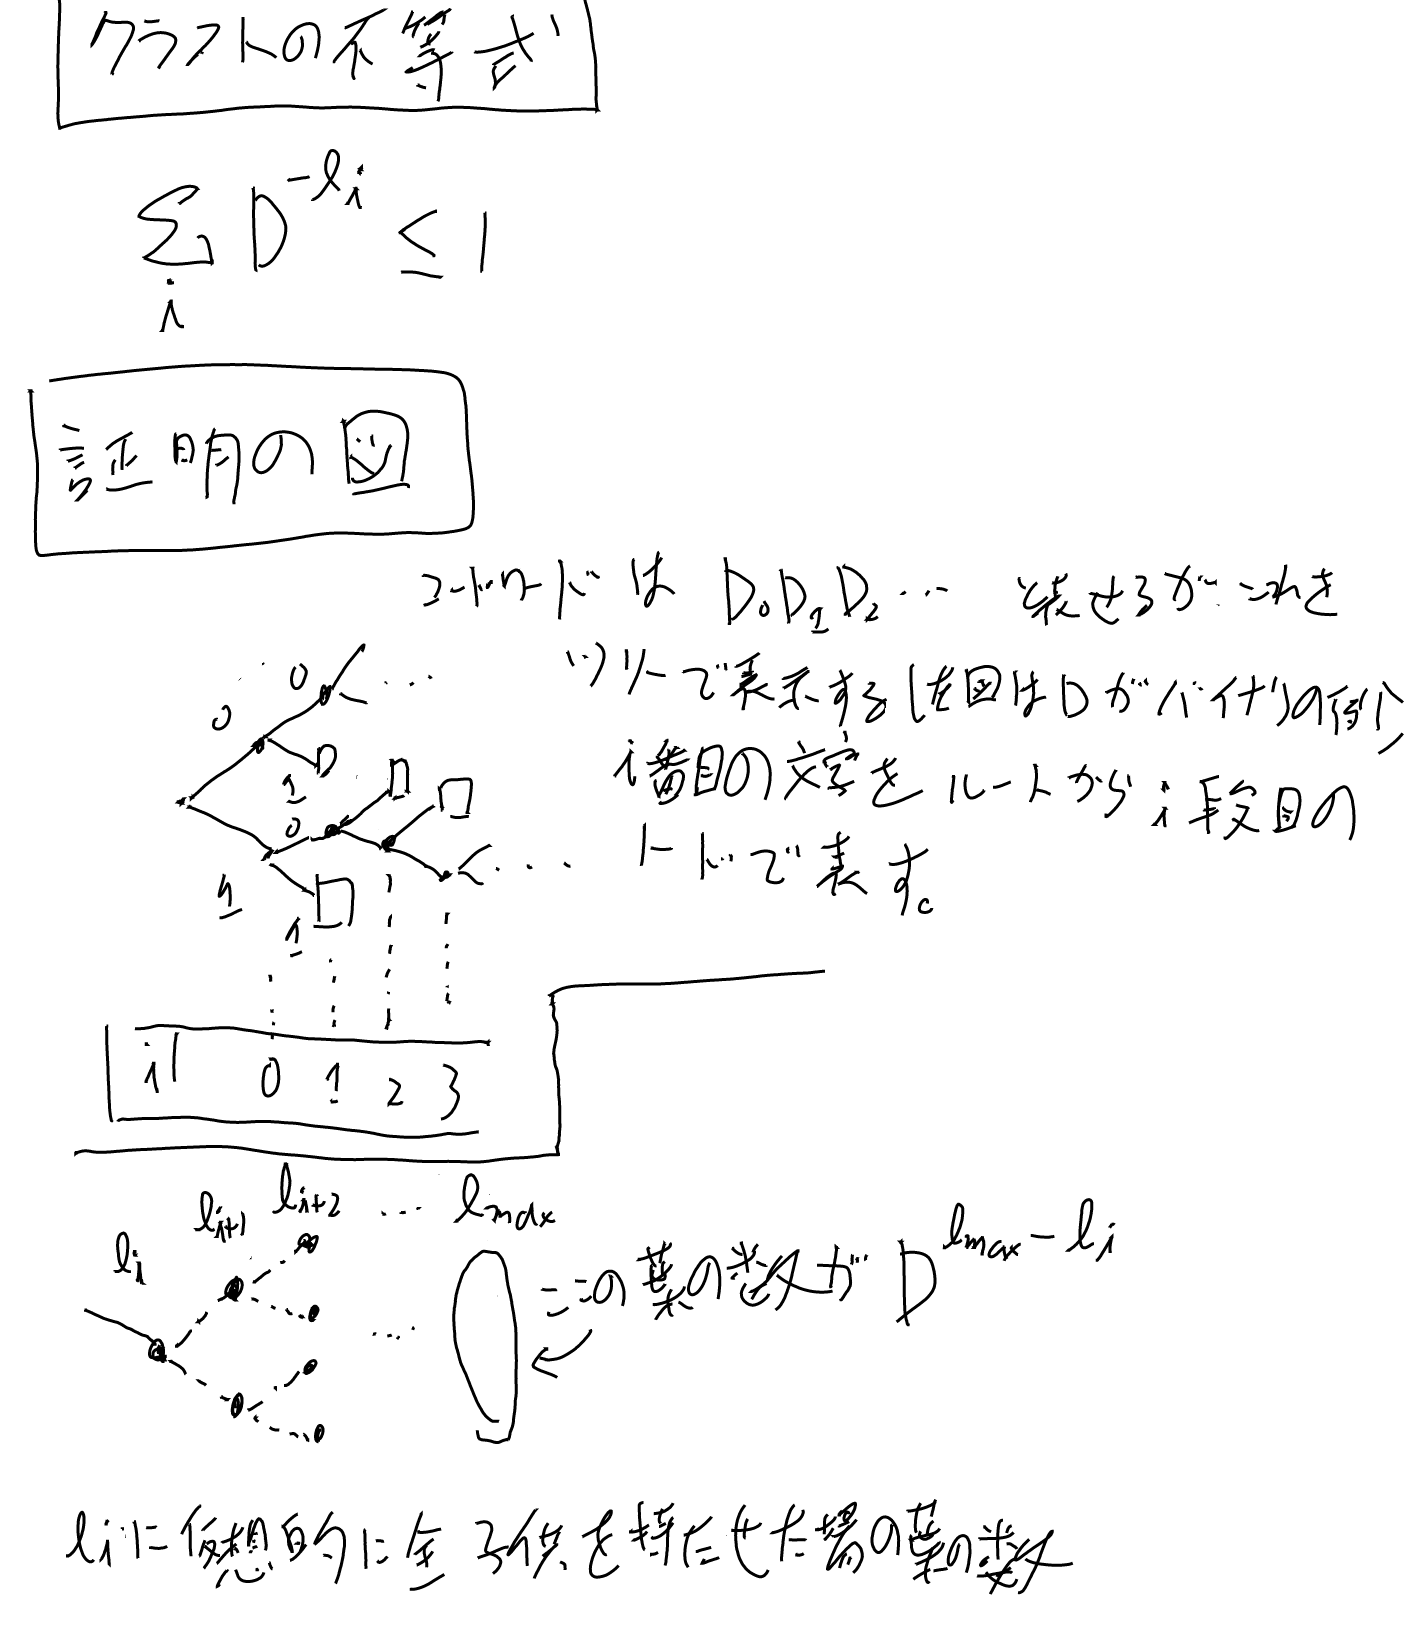 クラフトの不等式
∑ D^{-l_i} ≤ 1
i
証明の図
コードワードは D₀D₁D₂… と表せるが これを
ツリーで表示する(左図はDがバイナリの例)
i番目の文字を ルートから i段目の
ノードで表す。
0 0 …
1
0
1 1 …
i 0 1 2 3
l_i l_{i+1} l_{i+2} … l_max
ここの葉の数が D^{l_max - l_i}
…
l_iに仮想的に全子供を持たせた場の葉の数